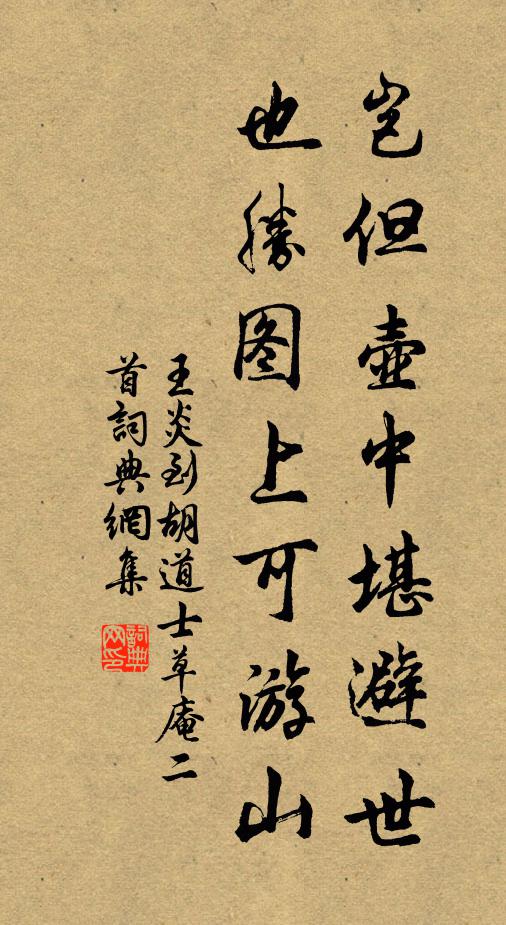 岂但壶中堪避世
也勝图上可游山
王炎到胡道士草庵二
首詞典網集
詞典
网印